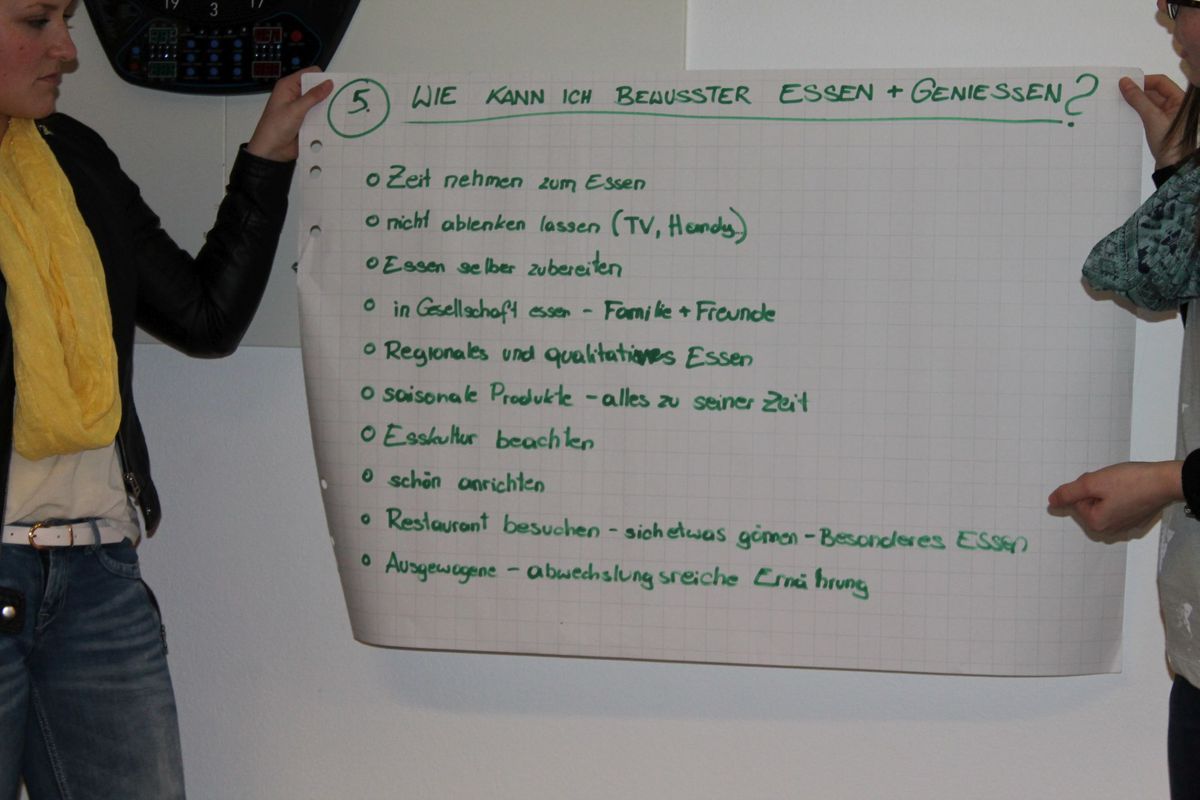 19 3 17
5. WIE KANN ICH BEWUSSTER ESSEN + GENIESSEN?
o Zeit nehmen zum Essen
o nicht ablenken lassen (TV, Handy..)
o Essen selber zubereiten
o in Gesellschaft essen - Familie + Freunde
o Regionales und qualitatives Essen
o saisonale Produkte - alles zu seiner Zeit
o Esskultur beachten
o schön anrichten
o Restaurant besuchen - sich etwas gönnen - Besonderes Essen
o Ausgewogene - abwechslungsreiche Ernährung